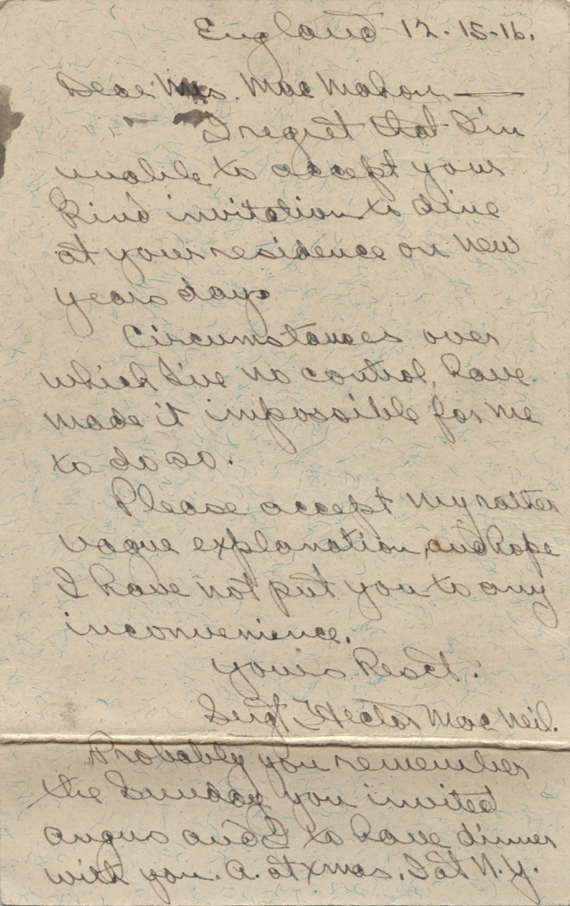 England 12-15-16.
Dear Mrs. MacMahon —
I regret that I'm
unable to accept your
kind invitation to dine
at your residence on New
years day.
Circumstances over
which I've no control, have
made it impossible for me
to do so.
Please accept my rather
vague explanation, and hope
I have not put you to any
inconvenience.
Yours Resct.
Sergt Hector MacNeil.
Probably you remember
the Sunday you invited
Angus and I to have dinner
with you. A. at xmas, I at N.Y.